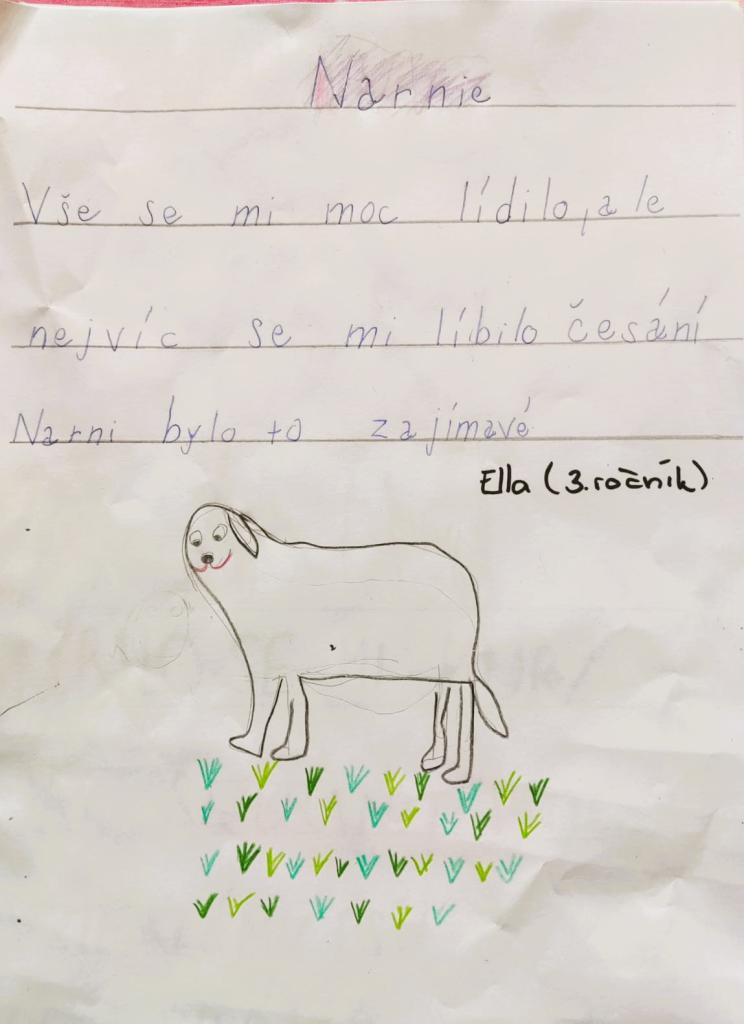 Narnie
Vše se mi moc lídilo, ale
nejvíc se mi líbilo česání
Narni bylo to zajímavé
Ella (3. ročník)